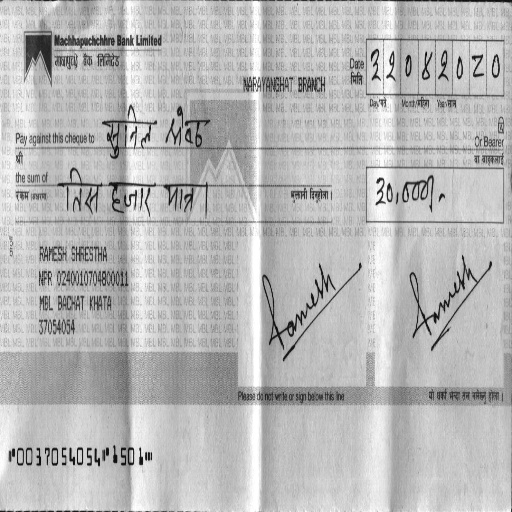 Machhapuchchhre Bank Limited
माछापुच्छ्रे बैंक लिमिटेड
NARAYANGHAT BRANCH
Date 22082020
मिति
Day/गते Month/महिना Year/साल
Pay against this cheque to सुनिल
Or Bearer
श्री
वा वाहकलाई
the sum of
रकम (अक्षरमा) तिस हजार मात्र। भुक्तानी दिनुहोला।
30,000/-
RAMESH SHRESTHA
NPR 0240010704800011
MBL BACHAT KHATA
37054054
Ramesh Ramesh
Please do not write or sign below this line
यो धर्का भन्दा तल नलेख्नु होला।
0037054054 1501